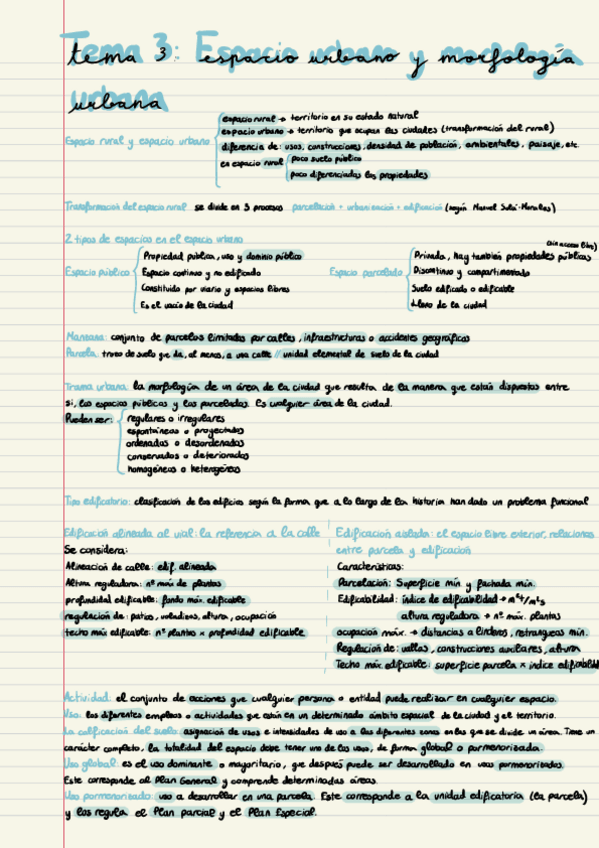 Tema 3: Espacio urbano y morfología
urbana
Espacio rural y espacio urbano
espacio rural → territorio en su estado natural
espacio urbano → territorio que ocupan las ciudades (transformación del rural)
diferencia de: usos, construcciones, densidad de población, ambientales, paisaje, etc
en espacio rural
poco suelo público
poco diferenciadas las propiedades
Transformación del espacio rural se divide en 3 procesos parcelación + urbanización + edificación (según Manuel Solà-Morales)
2 tipos de espacios en el espacio urbano
Espacio público
Propiedad pública, uso y dominio público
Espacio continuo y no edificado
Constituido por viario y espacios libres
Es el vacío de la ciudad
Espacio parcelado
(sin acceso libre)
Privada, hay también propiedades públicas
Discontinuo y compartimentado
Suelo edificado o edificable
Lleno de la ciudad
Manzana: conjunto de parcelas limitadas por calles, infraestructuras o accidentes geográficos
Parcela: trozo de suelo que da, al menos, a una calle // unidad elemental de suelo de la ciudad
Trama urbana: la morfología de un área de la ciudad que resulta de la manera que están dispuestos entre
sí, los espacios públicos y los parcelados. Es cualquier área de la ciudad.
Pueden ser:
regulares o irregulares
espontáneas o proyectadas
ordenadas o desordenadas
conservados o deteriorados
homogéneos o heterogéneos
Tipo edificatorio: clasificación de los edificios según la forma que a lo largo de la historia han dado un problema funcional
Edificación alineada al vial: la referencia a la calle
Se considera:
Alineación de calle: edif. alineada
Altura reguladora: nº máx de plantas
profundidad edificable: fondo máx. edificable
regulación de: patios, voladizos, altura, ocupación
techo máx edificable: nº plantas x profundidad edificable
Edificación aislada: el espacio libre exterior, relaciones
entre parcela y edificación
Características:
Parcelación: Superficie mín y fachada mín.
Edificabilidad: índice de edificabilidad → m²t/m²s
altura reguladora → nº máx. plantas
ocupación máx. → distancias a linderos, retranqueos mín.
Regulación de: vallas, construcciones auxiliares, altura
Techo máx edificable: superficie parcela x índice edificabilidad
Actividad: el conjunto de acciones que cualquier persona o entidad puede realizar en cualquier espacio.
Uso: los diferentes empleos o actividades que están en un determinado ámbito espacial de la ciudad y el territorio.
La calificación del suelo: asignación de usos e intensidades de uso a las diferentes zonas en las que se divide un área. Tiene un
carácter completo, la totalidad del espacio debe tener uno de los usos, de forma global o pormenorizada.
Uso global: es el uso dominante o mayoritario, que después puede ser desarrollado en usos pormenorizados.
Este corresponde al Plan General y comprende determinadas áreas.
Uso pormenorizado: uso a desarrollar en una parcela. Este corresponde a la unidad edificatoria (la parcela)
y los regula el Plan parcial y el Plan Especial.